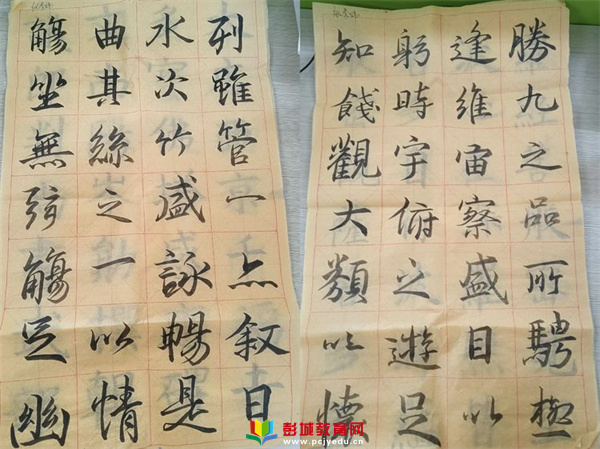 觴曲水列
坐其次雖
無絲竹管
弦之盛一
觴一詠亦
足以暢敘
幽情是日
知躬逢勝
餞時維九
觀宇宙之
大俯察品
類之盛所
以遊目騁
懷足以極
彭城教育网
www.pcjyedu.cn